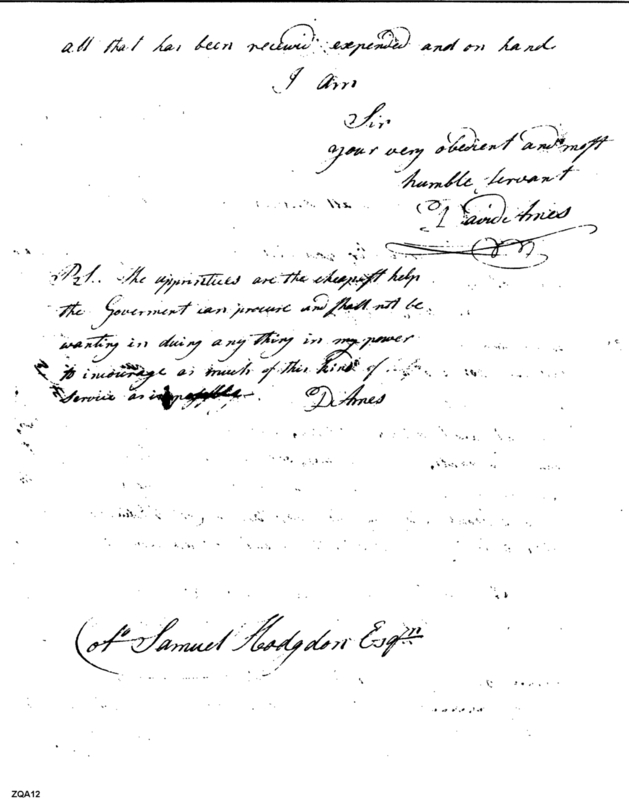 all that has been receivd expended and on hand
I am
Sir
your very obedient and most
humble servant
David Ames
P.S. The apprintices are the cheapest help
the Goverment can procure and shall not be
wanting in doing any thing in my power
to incourage as much of this kind of
Service as is possible. D Ames
Colo Samuel Hodgdon Esqr
ZQA12